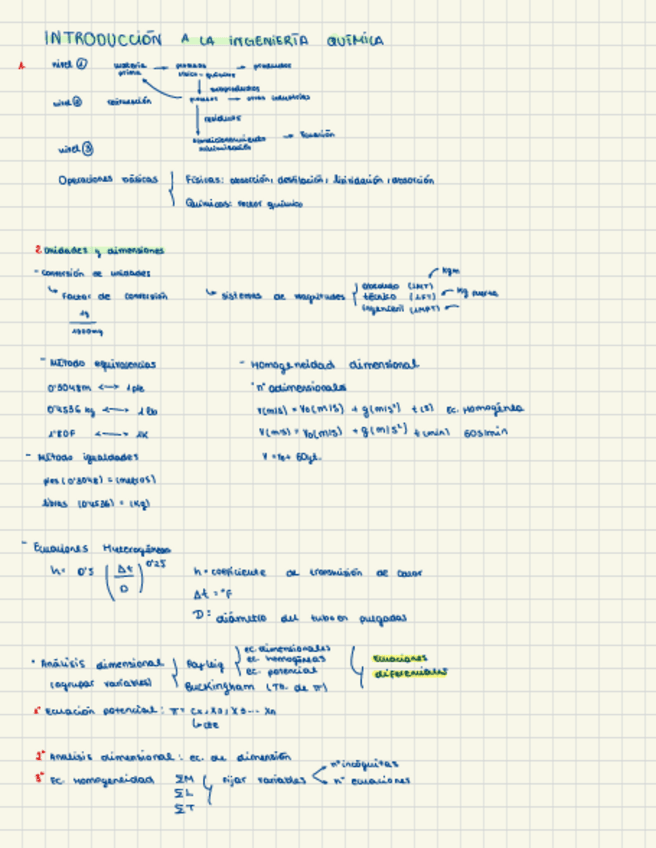 INTRODUCCIÓN A LA INGENIERÍA QUÍMICA
1.
nivel ① materia prima → proceso físico-químico → productos
subproductos
nivel ② → otras industrias
residuos
nivel ③ acondicionamiento minimización
Operaciones básicas
Físicas: absorción, destilación,
Químicas: reactor químico
2. Unidades y dimensiones
- Conversión de unidades
↳ Factor de conversión
↳ sistemas de magnitudes
absoluto (LMT) kgm
técnico (LFT) kg fuerza
ingenieril (LMFT)
1g
1000mg
- Método equivalencias
0'3048m ↔ 1 pie
0'4536 kg ↔ 1 lb
1'8ºF ↔ 1K
- Método igualdades
pies (0'3048) = (metros)
libras (0'4536) = (kg)
- Homogeneidad dimensional
nº adimensionales
v(m/s) = v₀(m/s) + g(m/s²) t(s) Ec. Homogénea
v(m/s) = v₀(m/s) + g(m/s²) t(min) 60s/min
v = v₀ + 60gt.
- Ecuaciones Heterogéneas
h = 0'5 (Δt / D)^0'25
h = coeficiente de transmisión de calor
Δt = ºF
D = diámetro del tubo en pulgadas
· Análisis dimensional (agrupar variables)
Rayleig
ec. dimensionales
ec. homogéneas
ec. potencial
Buckingham (Th. de π)
Ecuaciones diferenciales
1º Ecuación potencial: π = Cx₁ x₂, x₃... xn
↳ cte
2º Análisis dimensional: ec. de dimensión
3º Ec. Homogeneidad
ΣM
ΣL
ΣT
Fijar variables
nº incógnitas
nº ecuaciones